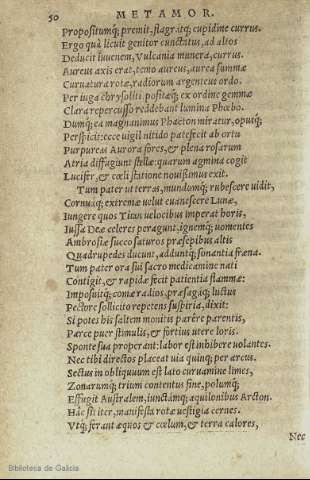 50 METAMOR.
Propositumq́; premit, flagratq́; cupidine currus.
Ergo quà licuit genitor cunctatus, ad altos
Deducit iuuenem, Vulcania munera, currus.
Aureus axis erat, temo aureus, aurea summæ
Curuatura rotæ, radiorum argenteus ordo.
Per iuga chrysolithi, positæq́; ex ordine gemmæ
Clara repercusso reddebant lumina Phœbo.
Dumq́; ea magnanimus Phaëton miratur, opusq́;
Perspicit: ecce uigil nitido patefecit ab ortu
Purpureas Aurora fores, & plena rosarum
Atria diffugiunt stellæ: quarum agmina cogit
Lucifer, & cœli statione nouißimus exit.
Tum pater ut terras, mundumq́; rubescere uidit,
Cornuaq́; extremæ uelut euanescere Lunæ,
Iungere equos Titan uelocibus imperat horis,
Iussa Deæ celeres peragunt, ignemq́; uomentes
Ambrosiæ succo saturos præsepibus altis
Quadrupedes ducunt, adduntq́; sonantia fræna.
Tum pater ora sui sacro medicamine nati
Contigit, & rapidæ fecit patientia flammæ:
Imposuitq́; comæ radios, præsagaq́; luctus
Pectore sollicito repetens suspiria, dixit:
Si potes his saltem monitis parêre parentis,
Parce puer stimulis, & fortius utere loris.
Sponte sua properant: labor est inhibere uolantes.
Nec tibi directos placeat uia quinq; per arcus.
Sectus in obliquum est lato curuamine limes,
Zonarumq́; trium contentus fine, polumq́;
Effugit Australem, iunctamq́; aquilonibus Arcton.
Hac sit iter, manifesta rotæ uestigia cernes.
Vtq́; ferant æquos & cœlum, & terra calores,
Nec
Biblioteca de Galicia